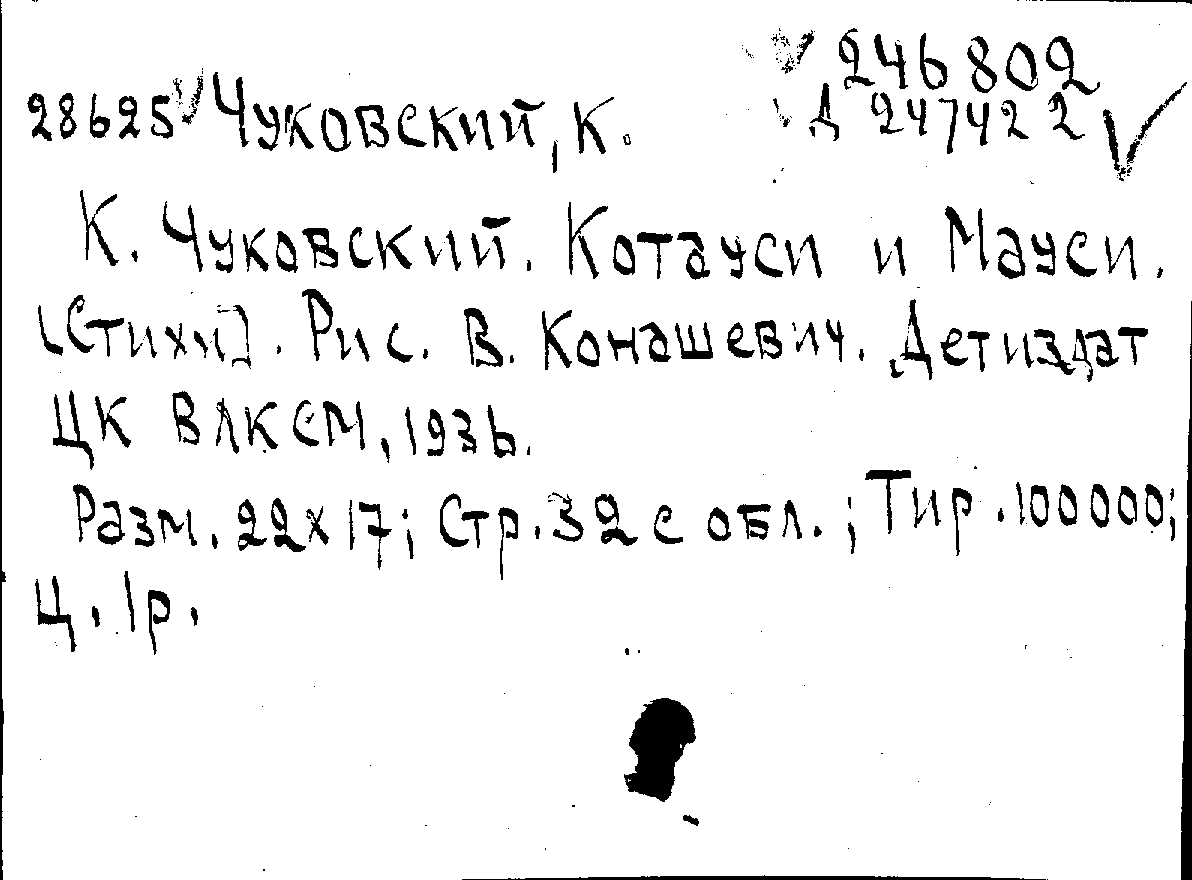 246802
28625 Чуковский, К.
Д 247422
К. Чуковский. Котауси и Мауси.
[Стихи]. Рис. В. Конашевич. Детиздат
ЦК ВЛКСМ, 1936.
Разм. 22х17; Стр. 32 с обл.; Тир. 100000;
Ц. 1р.